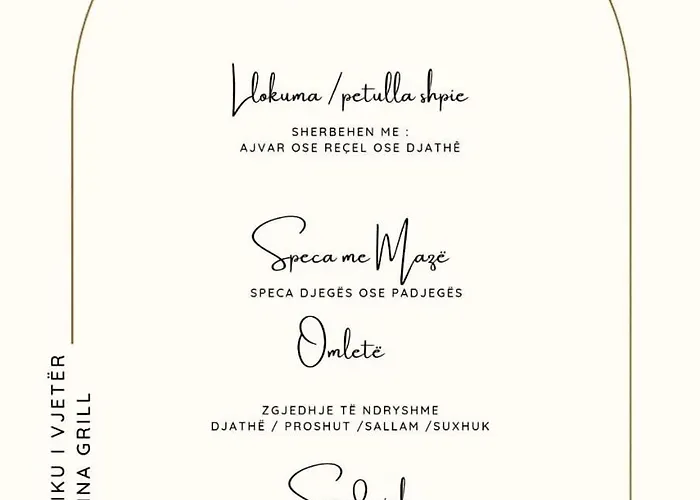 Llokuma / petulla shpie
SHERBEHEN ME :
AJVAR OSE REÇEL OSE DJATHË
Speca me Mazë
SPECA DJEGËS OSE PADJEGËS
Omletë
ZGJEDHJE TË NDRYSHME
DJATHË / PROSHUT /SALLAM /SUXHUK
I VJETËR
GRILL